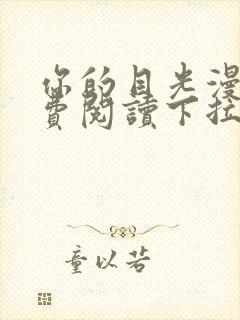 你的目光漫
費閱讀下拉
童以若